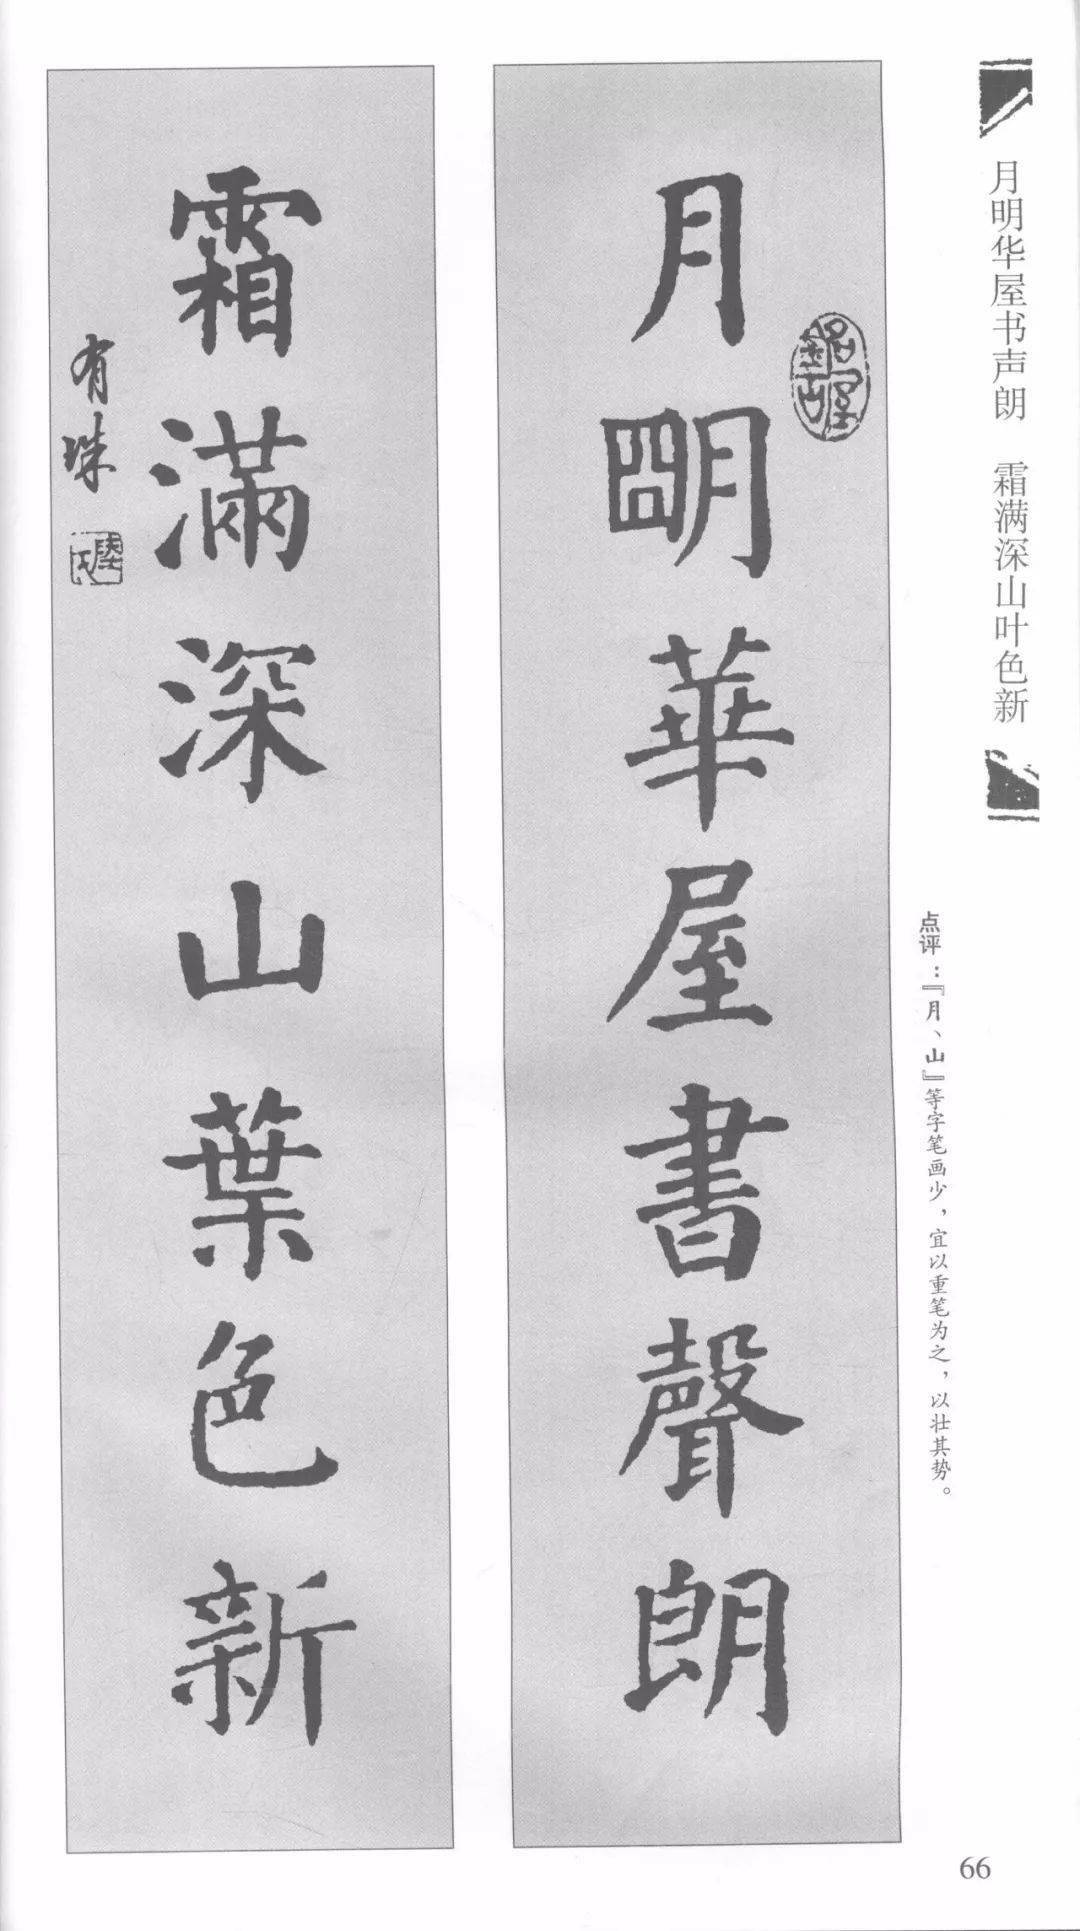 月明华屋书声朗　霜满深山叶色新
点评：『月、山』等字笔画少，宜以重笔为之，以壮其势。
月明華屋書聲朗
霜滿深山葉色新
有珠
66